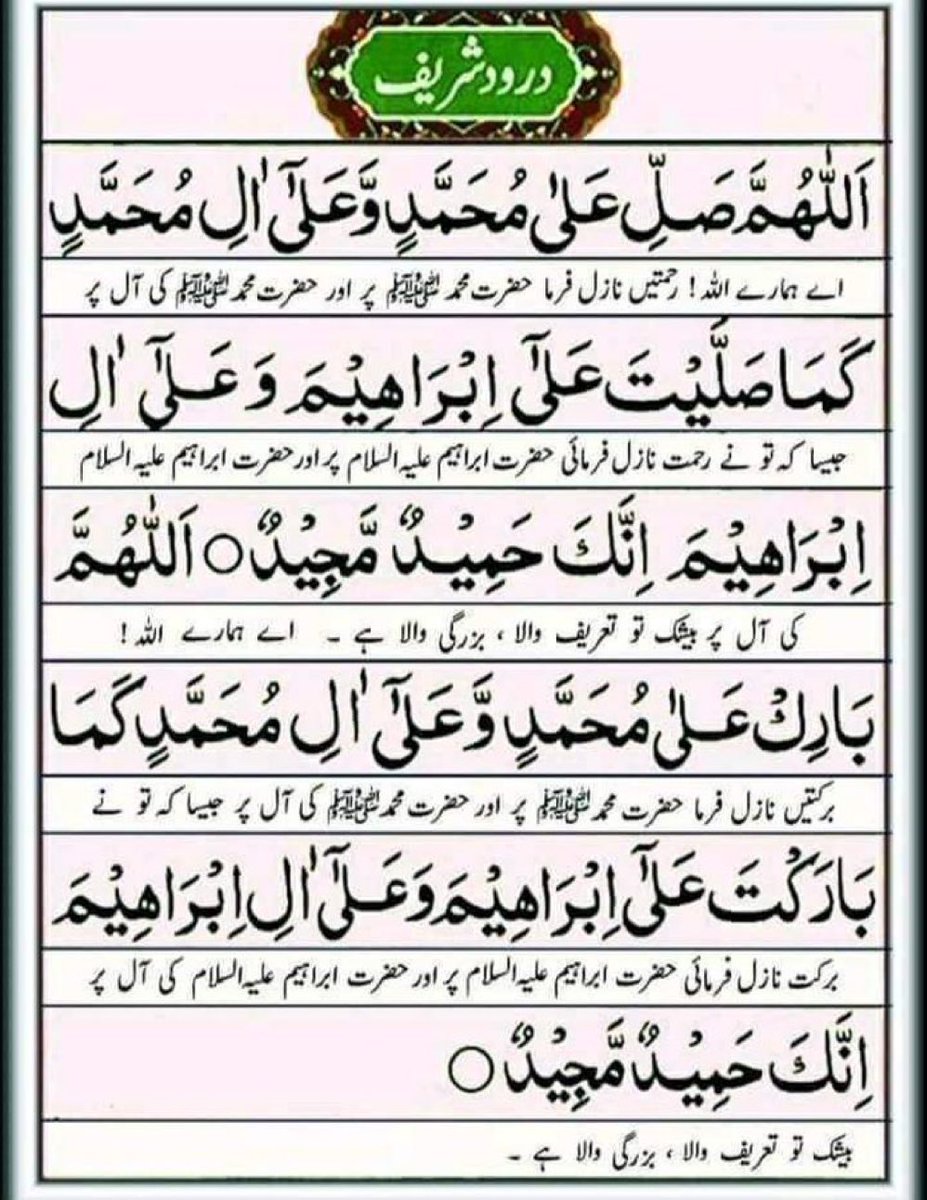 درود شریف
اَللّٰهُمَّ صَلِّ عَلٰى مُحَمَّدٍ وَّعَلٰٓى اٰلِ مُحَمَّدٍ
اے ہمارے اللہ! رحمتیں نازل فرما حضرت محمد ﷺ پر اور حضرت محمد ﷺ کی آل پر
كَمَا صَلَّيْتَ عَلٰٓى اِبْرَاهِيْمَ وَ عَلٰٓى اٰلِ
جیسا کہ تو نے رحمت نازل فرمائی حضرت ابراہیم علیہ السلام پر اور حضرت ابراہیم علیہ السلام
اِبْرَاهِيْمَ اِنَّكَ حَمِيْدٌ مَّجِيْدٌ ○ اَللّٰهُمَّ
کی آل پر بیشک تو تعریف والا ، بزرگی والا ہے ۔ اے ہمارے اللہ !
بَارِكْ عَلٰى مُحَمَّدٍ وَّعَلٰٓى اٰلِ مُحَمَّدٍ كَمَا
برکتیں نازل فرما حضرت محمد ﷺ پر اور حضرت محمد ﷺ کی آل پر جیسا کہ تو نے
بَارَكْتَ عَلٰٓى اِبْرَاهِيْمَ وَعَلٰٓى اٰلِ اِبْرَاهِيْمَ
برکت نازل فرمائی حضرت ابراہیم علیہ السلام پر اور حضرت ابراہیم علیہ السلام کی آل پر
اِنَّكَ حَمِيْدٌ مَّجِيْدٌ ○
بیشک تو تعریف والا ، بزرگی والا ہے ۔